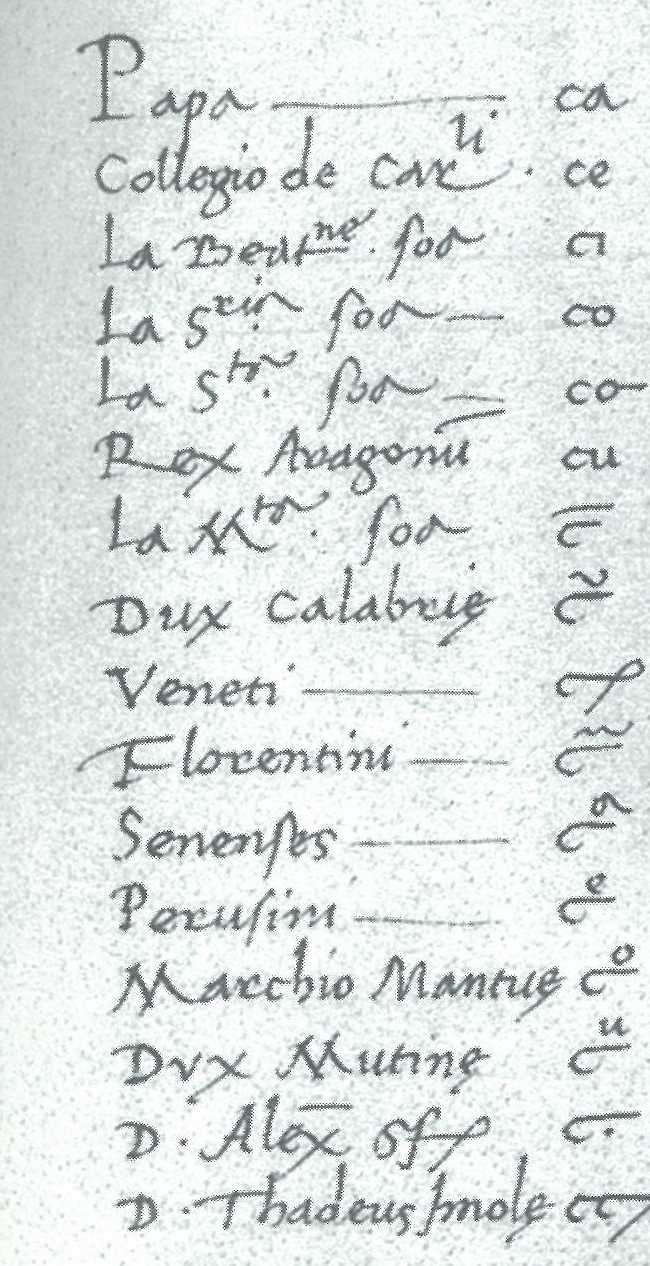 Papa ca
Collegio de Carli. ce
La Beatne. soa ci
La Sria. soa co
La Sta. soa co
Rex Aragonū cu
La Mta. soa
Dux Calabrię
Veneti
Florentini
Senenses
Perusini
Marchio Mantuę
Dvx Mutinę
D. Alex̄ Sf
D. Thadeus Imolę